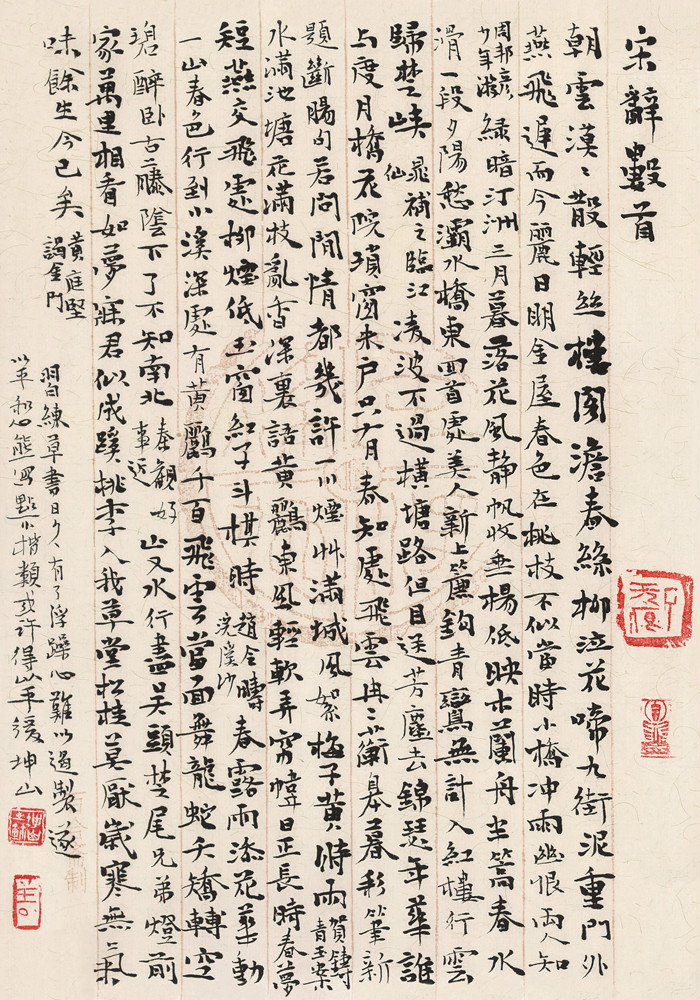 宋辭數首
朝雲漠〻散輕絲樓閣澹春絲柳泣花啼九街泥重門外
燕飛遲而今麗日明金屋春色在桃枝不似當時小橋冲雨幽恨兩人知
周邦彥少年遊綠暗汀洲三月暮落花風靜帆收垂楊低映木蘭舟半篙春水
滑一段夕陽愁灞水橋東回首處美人新上簾鉤青鸞無計入紅樓行雲
歸楚峽晁補之臨江仙凌波不過橫塘路但目送芳塵去錦瑟年華誰
与度月橋花院瑣窗朱户只有春知處飛雲冉〻蘅皋暮彩筆新
題斷腸句若問閒情都幾許一川煙艸滿城風絮梅子黃時雨賀鑄青玉案
水滿池塘花滿枝亂香深裏語黃鸝東風輕軟弄帘幃日正長時春夢
短燕交飛處柳煙低玉窗紅子斗棋時趙令疇浣溪沙春露雨添花花動
一山春色行到小溪深處有黃鸝千百飛雲當面舞龍蛇夭矯轉空
碧醉卧古藤陰下了不知南北秦觀好事近山又水行盡吳頭楚尾兄弟燈前
家萬里相看如夢寐君似成蹊桃李入我草堂松桂莫厭歲寒無氣
味餘生今已矣黃庭堅謁金門
練草書日久〻有了浮躁心難以遏製遂
以平和心態寫點小楷類或許得以平緩坤山